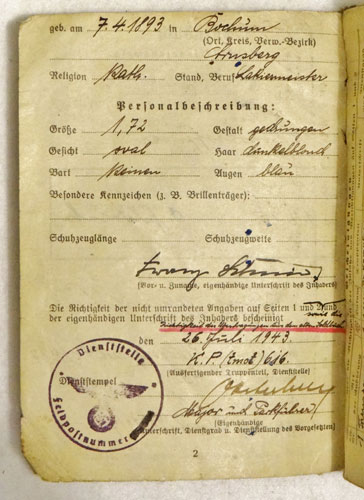 geb. am 7.4.1893 in Bochum
(Ort, Kreis, Verw.-Bezirk)
Arnsberg
Religion kath. Stand, Beruf Lakiermeister
Personalbeschreibung:
Größe 1,72 Gestalt gedrungen
Gesicht oval Haar dunkelblond
Bart keinen Augen blau
Besondere Kennzeichen (z. B. Brillenträger):
Schuhzeuglänge Schuhzeugweite
Franz
(Vor- u. Zuname, eigenhändige Unterschrift des Inhabers)
Die Richtigkeit der nicht umrandeten Angaben auf Seiten 1 und 2 und
der eigenhändigen Unterschrift des Inhabers bescheinigt
den 26. Juli 1943.
K.P. (mot) 686.
(Ausfertigender Truppenteil, Dienststelle)
Dienststempel
Dienststelle
Feldpostnummer
Major und Parkführer
(Eigenhändige
Unterschrift, Dienstgrad u. Dienststellung des Vorgesetzten)
2